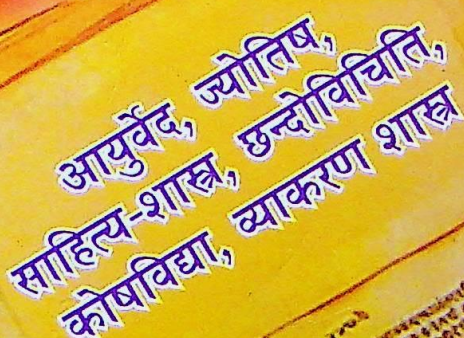 आयुर्वेद, ज्योतिष,
साहित्य-शास्त्र, छन्दोविचिति,
कोषविद्या, व्याकरण शास्त्र